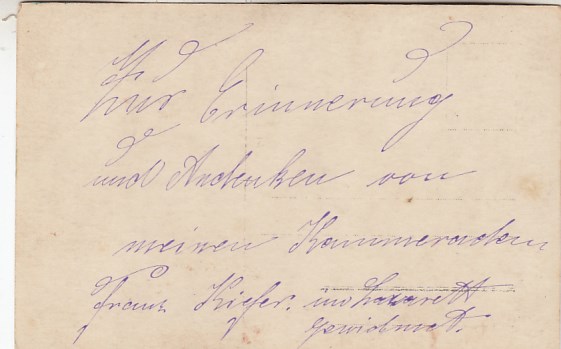 Zur Erinnerung
und Andenken von
meinen Kammeraden
Franz Kiefer. im Lazarett
gewidmet.